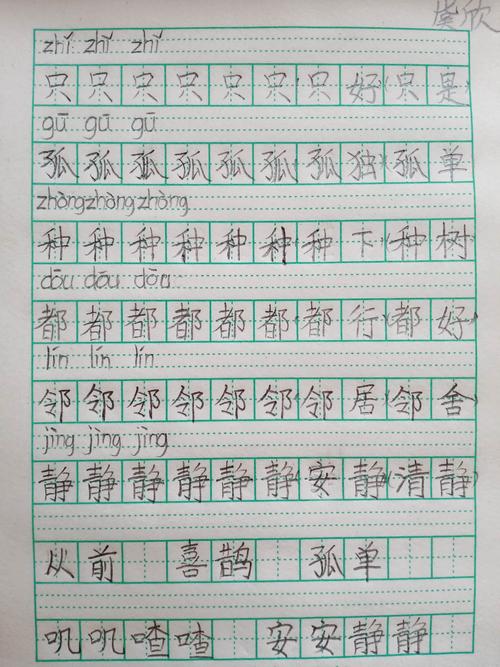 欣
zhǐ zhǐ zhǐ
只只只只只只(只好)(只是)
gū gū gū
孤孤孤孤孤孤(孤独)(孤单
zhòng zhòng zhòng
种种种种种种(种下)(种树)
dōu dōu dōu
都都都都都都(都行)(都好)
lín lín lín
邻邻邻邻邻邻(邻居)(邻舍)
jìng jìng jìng
静静静静静静(安静)(清静)
从前 喜鹊 孤单
叽叽喳喳 安安静静